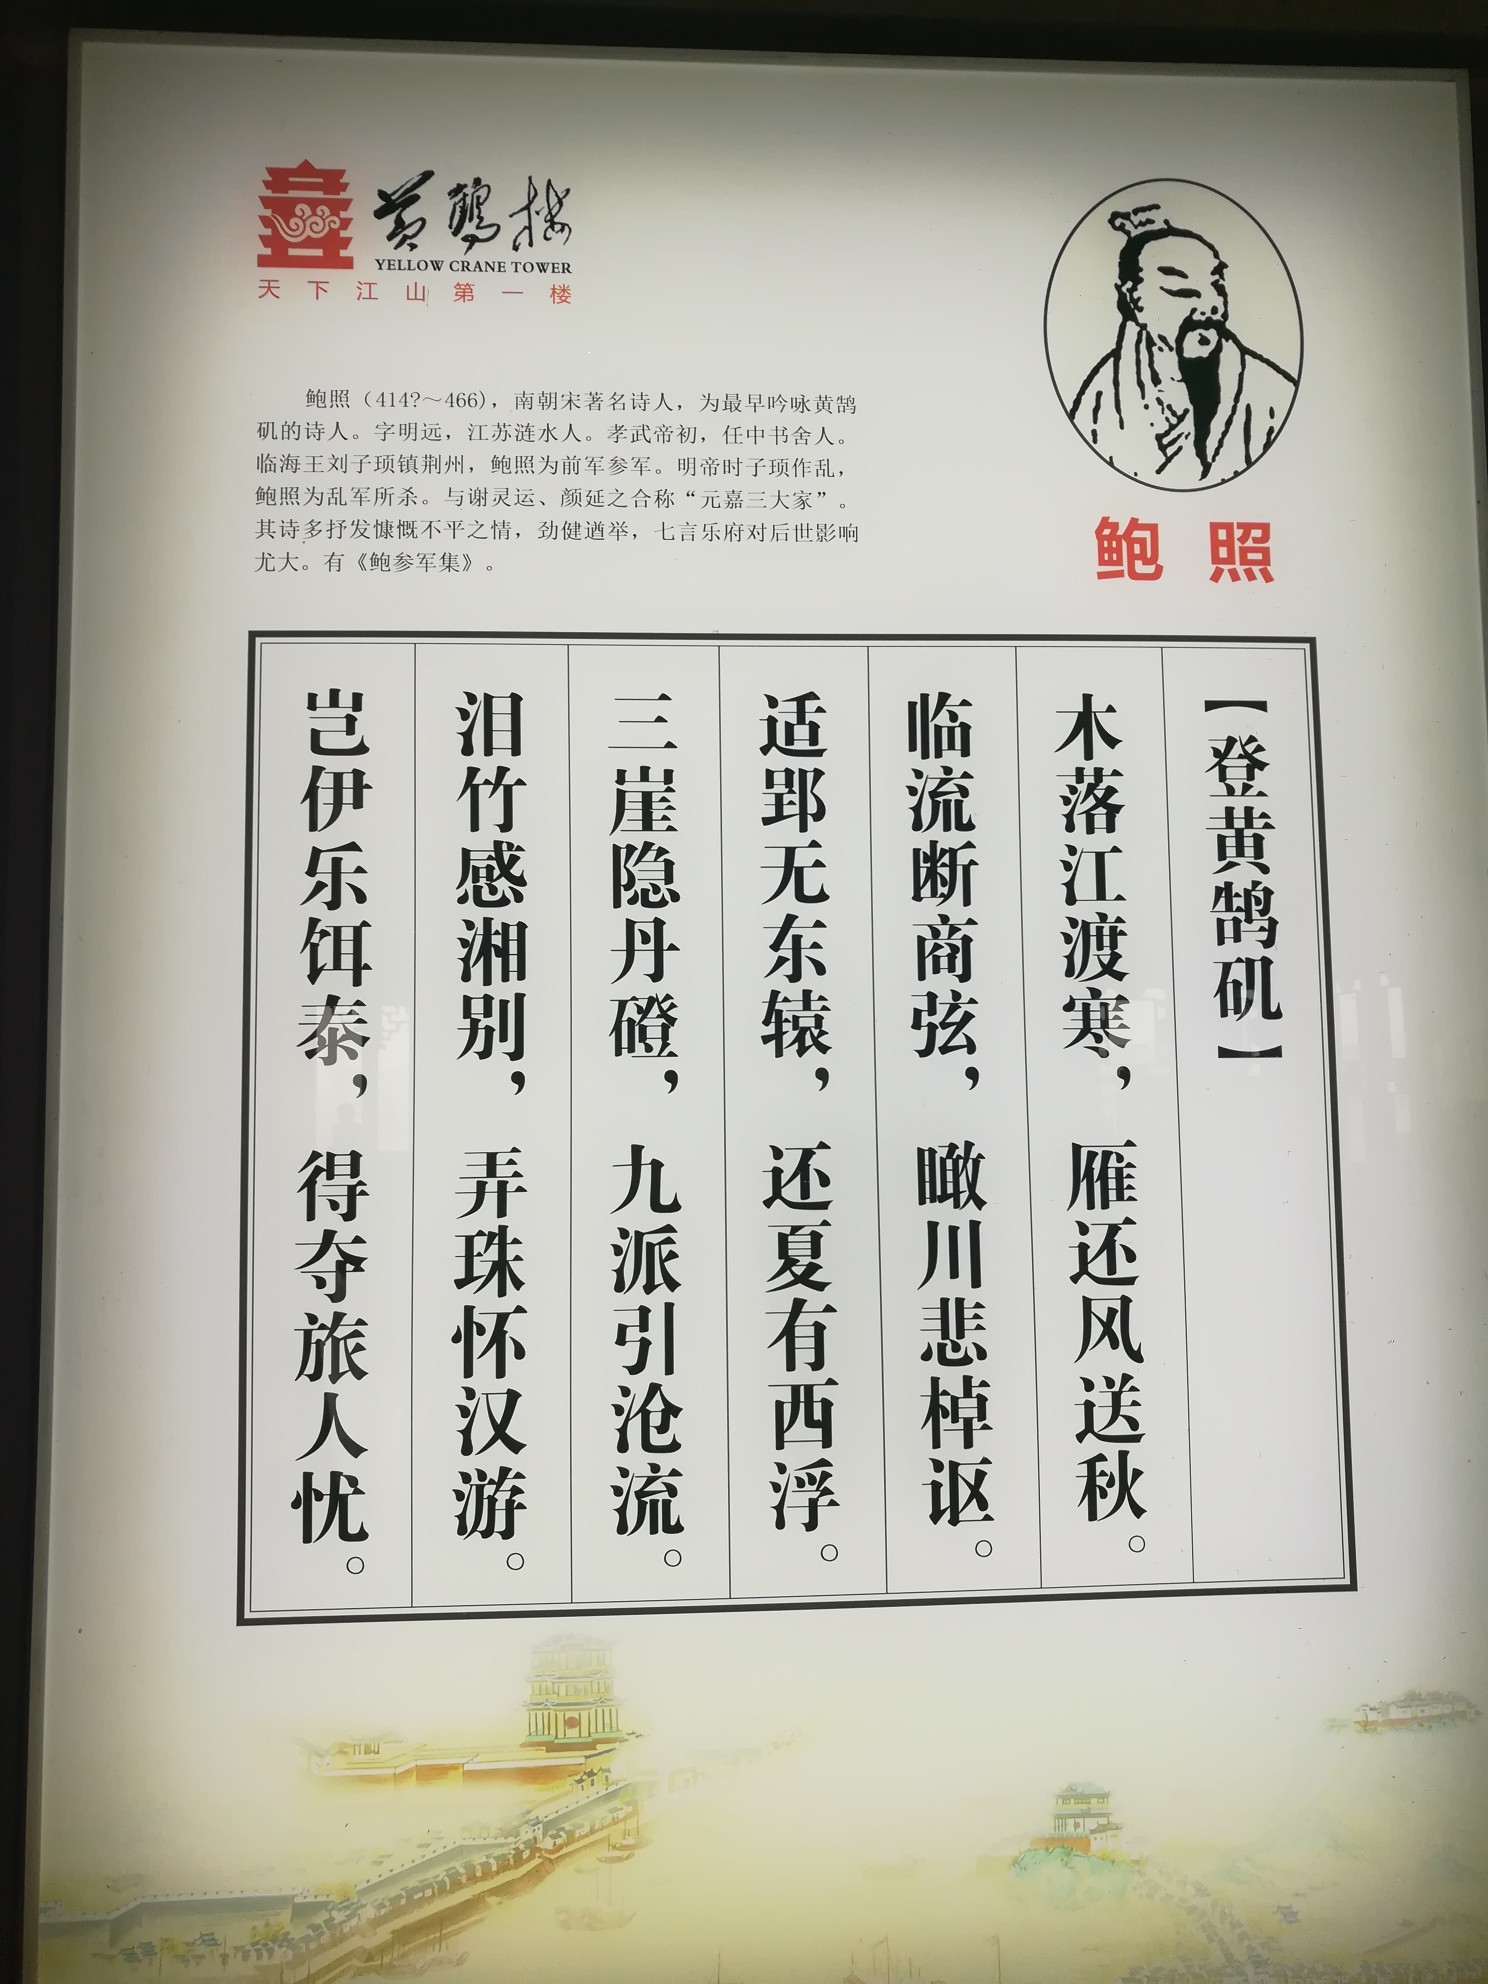 黄鹤楼
YELLOW CRANE TOWER
天下江山第一楼
鲍照（414?～466），南朝宋著名诗人，为最早吟咏黄鹄
矶的诗人。字明远，江苏涟水人。孝武帝初，任中书舍人。
临海王刘子顼镇荆州，鲍照为前军参军。明帝时子顼作乱，
鲍照为乱军所杀。与谢灵运、颜延之合称“元嘉三大家”。
其诗多抒发慷慨不平之情，劲健遒举，七言乐府对后世影响
尤大。有《鲍参军集》。
鲍照
【登黄鹄矶】
木落江渡寒，雁还风送秋。
临流断商弦，瞰川悲棹讴。
适郢无东辕，还夏有西浮。
三崖隐丹磴，九派引沧流。
泪竹感湘别，弄珠怀汉游。
岂伊乐饵泰，得夺旅人忧。